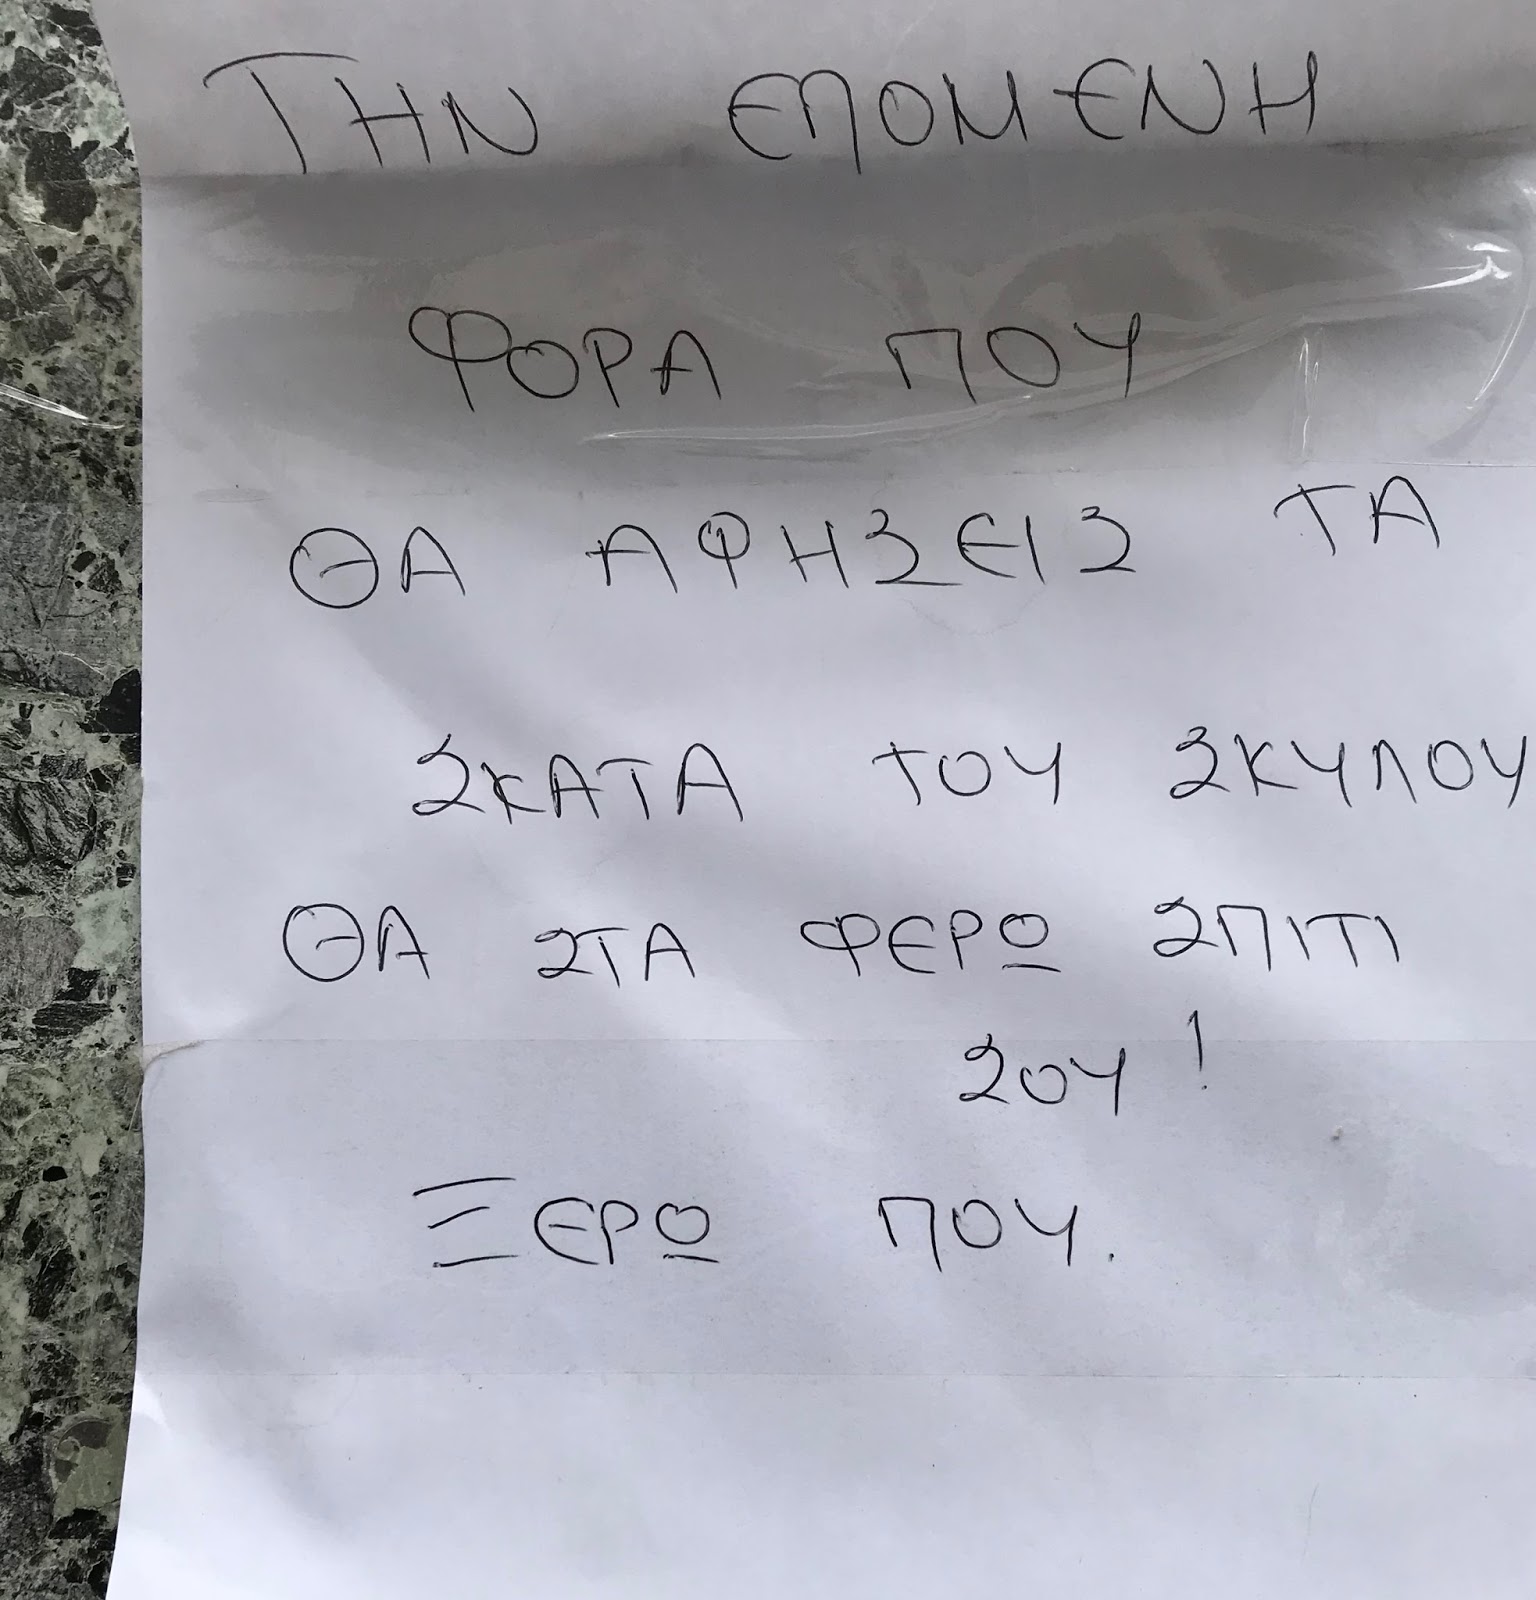 ΤΗΝ ΕΠΟΜΕΝΗ
ΦΟΡΑ ΠΟΥ
ΘΑ ΑΦΗΣΕΙΣ ΤΑ
ΣΚΑΤΑ ΤΟΥ ΣΚΥΛΟΥ
ΘΑ ΣΤΑ ΦΕΡΩ ΣΠΙΤΙ
ΣΟΥ!
ΞΕΡΩ ΠΟΥ.